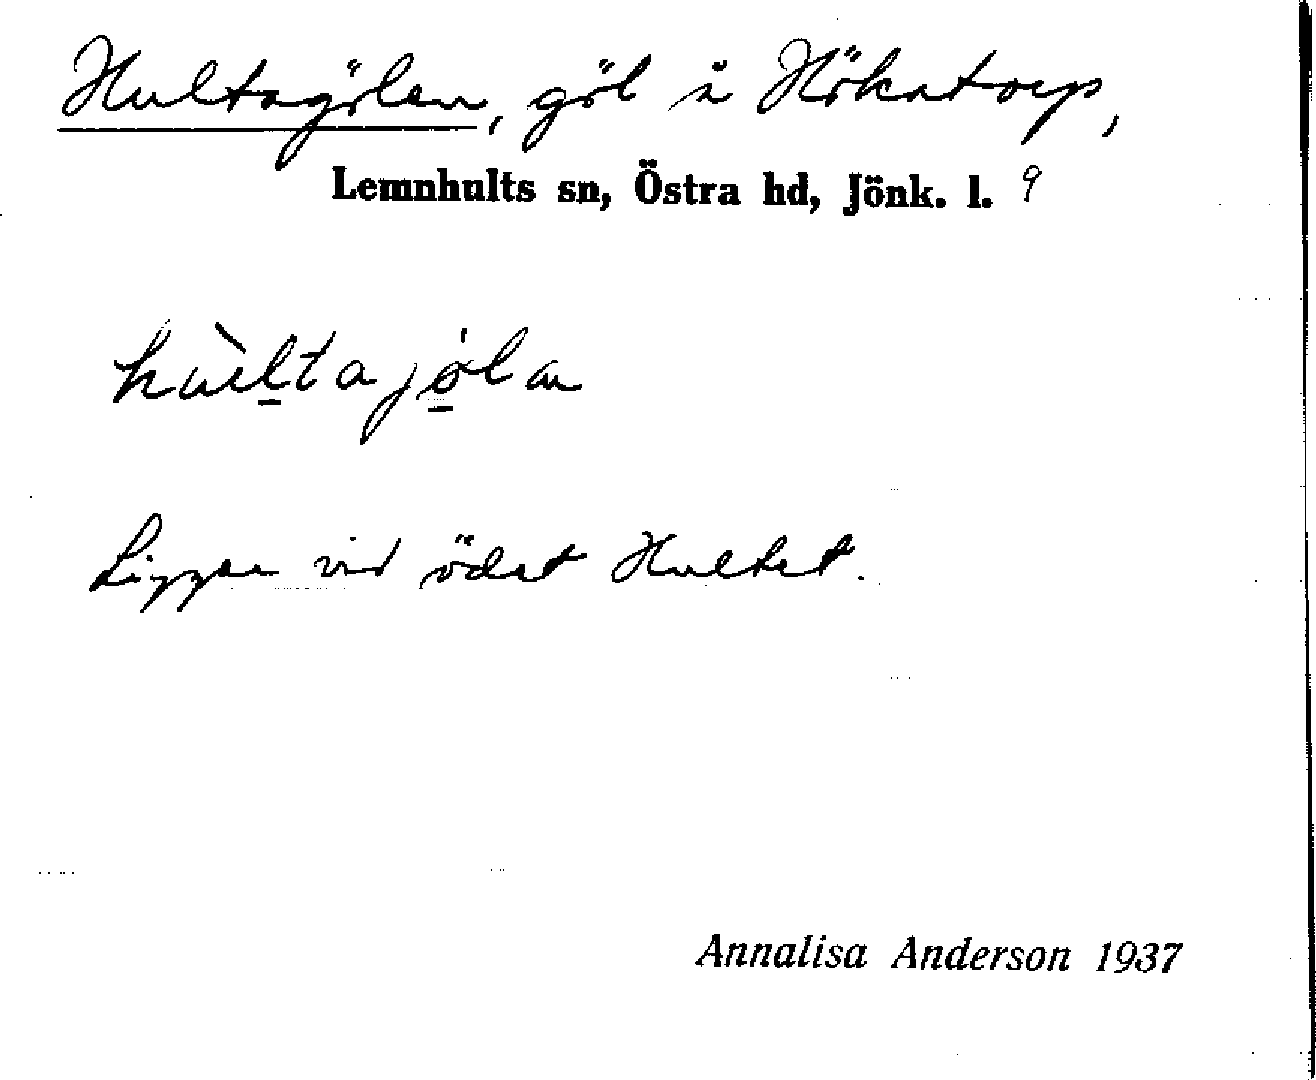 Hultagölen, göl å Hökatorp,
Lemnhults sn, Östra hd, Jönk. l. 9
Ligger vid ödet Hultet.
Annalisa Anderson 1937